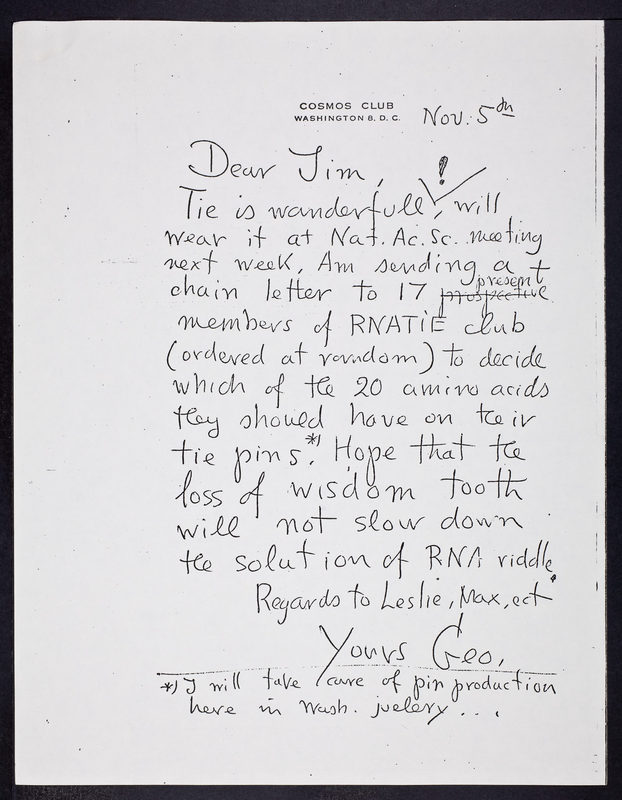 COSMOS CLUB
WASHINGTON 8, D. C.
Nov. 5th
Dear Jim,
Tie is wanderfull!, will
wear it at Nat. Ac. Sc. meeting
next week. Am sending a
chain letter to 17 prospective present
members of RNATIE club
(ordered at random) to decide
which of the 20 amino acids
they should have on their
tie pins.*) Hope that the
loss of wisdom tooth
will not slow down
the solution of RNA riddle.
Regards to Leslie, Max, ect
Yours Geo,
*) I will take care of pin production
here in Wash. juelery . . .